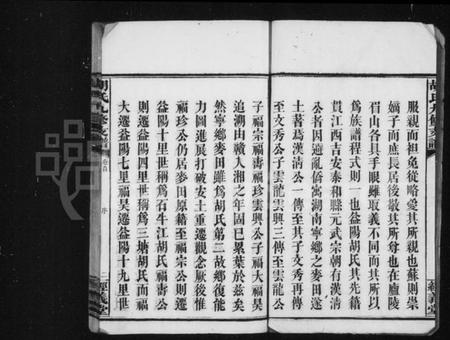 胡氏九修支譜
經義堂
服親而袒免從略愛其所親也蘇則崇
嫡子而庶長居後敬其所尊也在廬陵
眉山各具手眼雖取義不同而其所以
為族譜程式則一也益陽胡氏其先籍
貫江西吉安泰和縣元武宗朝有漢清
公者因避亂僑寓湖南寧鄉之麥田遂
土著焉漢清公一傳至其子文秀再傳
至文秀公子雲龍雲興三傳至雲龍公
子福宗福壽福珍雲興公子福大福昊
追溯由贛入湘之年固已累葉於茲矣
然寧鄉麥田雖為胡氏第二故鄉復能
力圖進展打破安土重遷觀念厥後惟
福珍公仍居麥田原籍至福宗公則遷
益陽十里世稱為石牛江胡氏福壽公
則遷益陽四里世稱為三塘胡氏而福
大遷益陽七里福昊遷益陽十九里世
胡氏九修支譜
卷首
序
二
經義堂